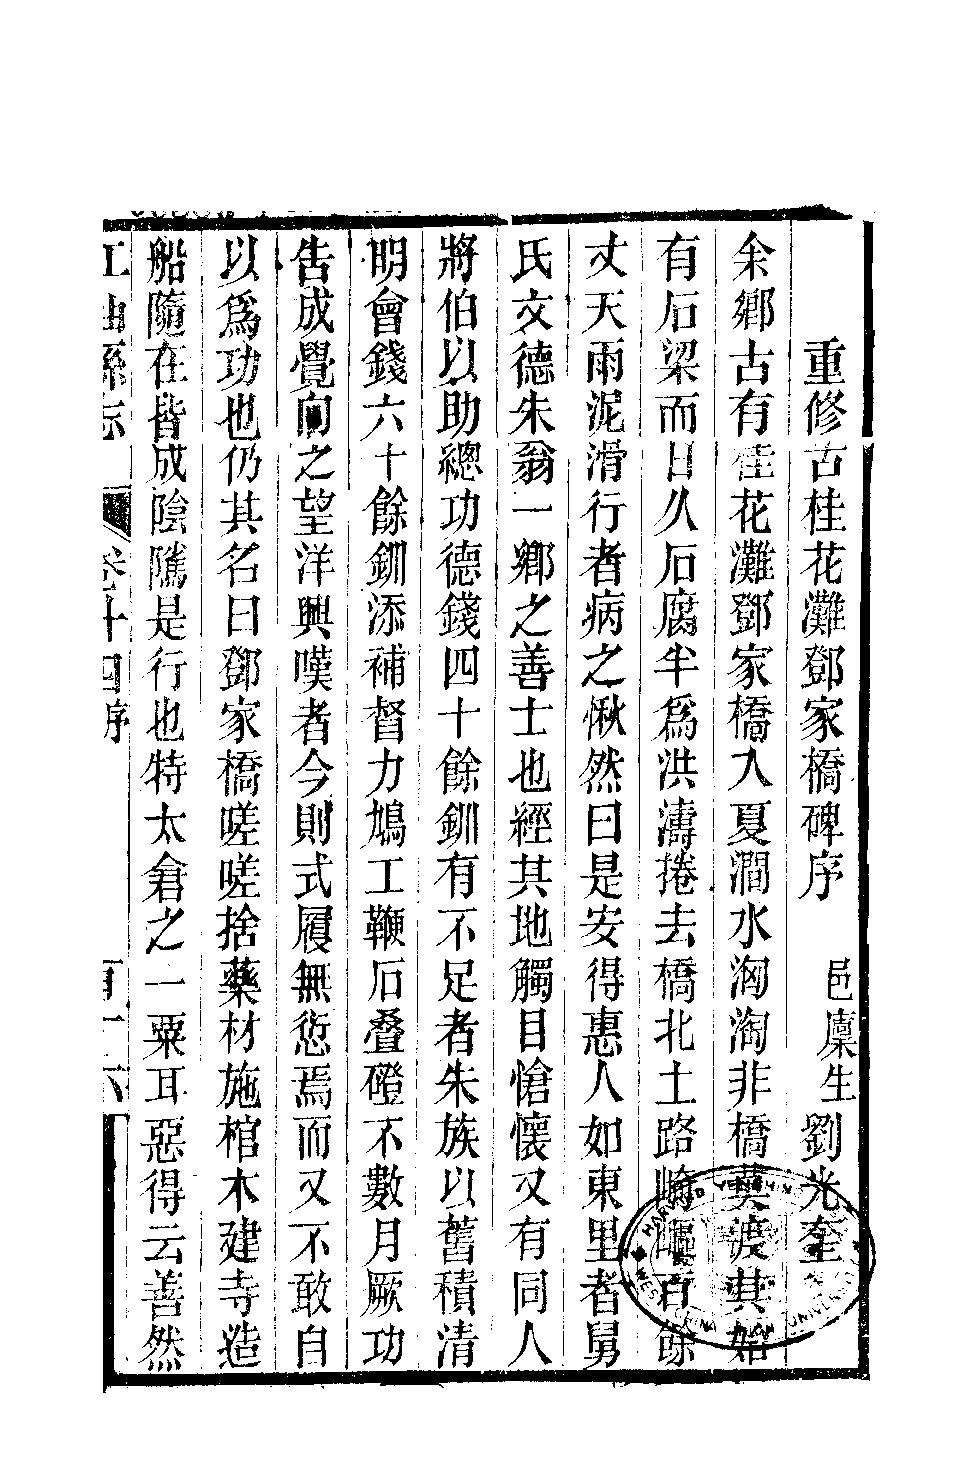 重修古桂花灘鄧家橋碑序 邑廩生劉光奎
余鄉古有桂花灘鄧家橋入夏澗水洶淘非橋莫渡其始
有石梁而日久石腐半爲洪濤捲去橋北土路崎嶇百餘
丈天雨泥滑行者病之愀然曰是安得惠人如東里者舅
氏文德朱翁一鄉之善士也經其地觸目愴懷又有同人
將伯以助總功德錢四十餘釧有不足者朱族以舊積清
明會錢六十餘釧添補督力鳩工鞭石叠磴不數月厥功
告成覺向之望洋興嘆者今則式履無愆焉而又不敢自
以爲功也仍其名曰鄧家橋嗟嗟捨藥材施棺木建寺造
船隨在皆成陰隲是行也特太倉之一粟耳惡得云善然
江油縣志 卷十四序 百二十六